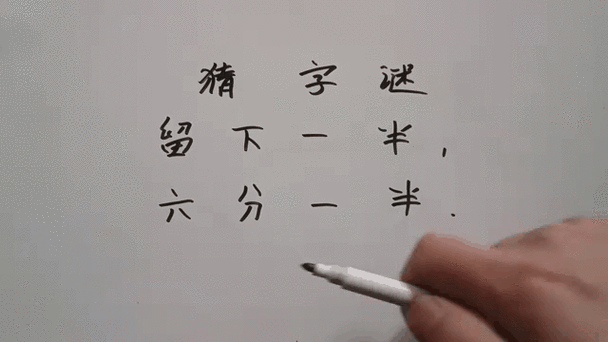 猜字谜
留下一半，
六分一半.